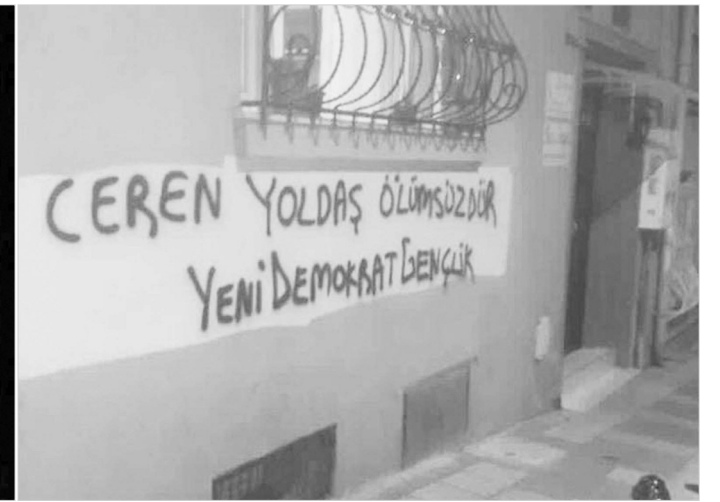 CEREN YOLDAŞ ÖLÜMSÜZDÜR
YENİ DEMOKRAT GENÇLİK